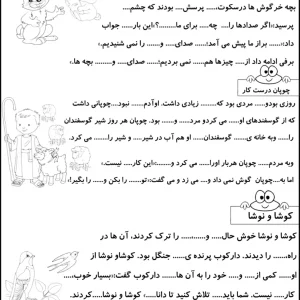 بچه خرگوش ها درسکوت..... پرسش.... بودند که چشم....
پرسید:«اگر صدادها را.... چه.... برای ما.......؟»این بار..... جواب
داد:«..... براز ما پیش می آمد:..... صدای.....و..... را نمی شنیدیم.»
برفی ادامه داد از..... چیزها هم..... نمی بردیم؛.....صدای.....و..... بچه ها.»
چوپان درست کار
روزی بودو..... مردی بود که........ زیادی داشت. اوآدم..... نبود....چوپانی داشت
که..... گوسفندهای او می کردو مرد.....و..... بود.چوپان هر روز شیر گوسفندان
را....... وبه خانه ی....... گوسفندان..... او هم آب در شیر.....و..... را می کرد.
وبه مردم..... چوپان هربار اورا..... می کرد.و.....می گفت:«این کار..... نیست.»
اما به....چوپان گوش نمی داد و..... می زد و می گفت«تو.....را بکن و.....را بگیر!»
کوشا و نوشا
کوشا و نوشا خوش حال.....و.......، را ترک کردند، آن ها در
راه.....را دیدند. دارکوب پرنده ی....... جنگل بود. کوشاو نوشا از
او..... کمی از.....و..... خود را به آن ها..... دارکوب گفت:«بسیار خوب....
کار.....نیست. شما باید تلاش کنید تا دانا.....،» کوشا و نوشا.....کردند.